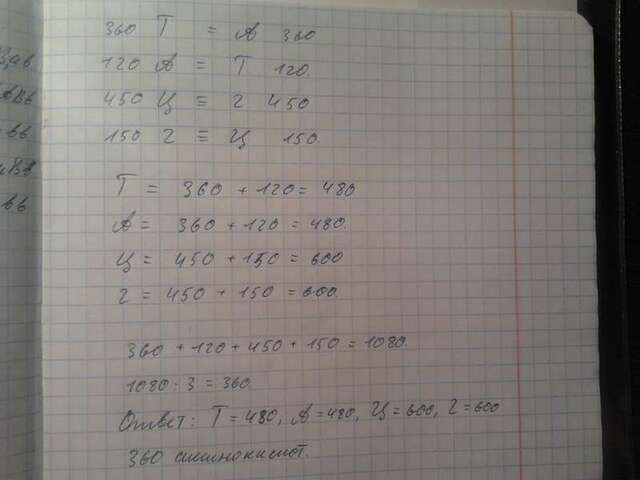 360 Т = А 360
120 А = Т 120.
450 Ц ≡ Г 450
150 Г ≡ Ц 150.
Т = 360 + 120 = 480
А = 360 + 120 = 480.
Ц = 450 + 150 = 600
Г = 450 + 150 = 600.
360 + 120 + 450 + 150 = 1080.
1080 : 3 = 360.
Ответ: Т = 480, А = 480, Ц = 600, Г = 600
360 аминокислот.